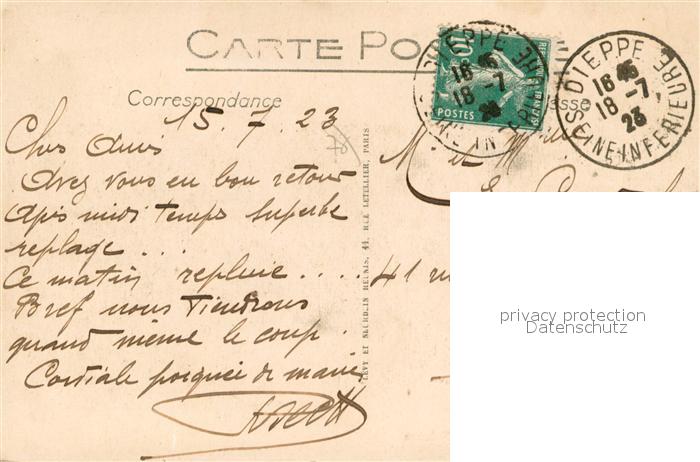 CARTE PO
Correspondance
asse
15.7.23
Chers Amis
Avez vous eu bon retour
Après midi temps superbe
replage ...
Ce matin repluie ....
Bref nous tiendrons
quand même le coup.
Cordiale poignée de main
M. et M
41 r
LÉVY ET NEURDEIN RÉUNIS, 44, RUE LETELLIER, PARIS
10
POSTES
DIEPPE
16 45
18 -7
23
SEINE INFERIEURE
DIEPPE
16 45
18 -7
23
SEINE INFERIEURE
privacy protection
Datenschutz